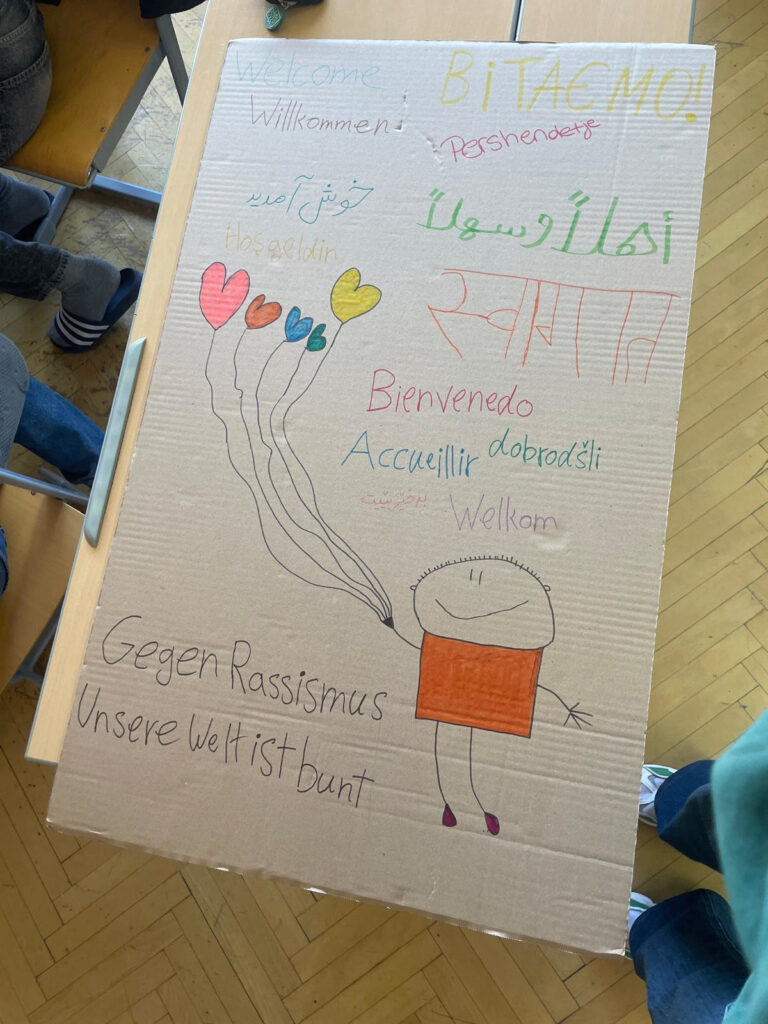 Welcome
ВіТАЄМО!
Willkommen
Pershendetje
خوش آمدید
أهلاً وسهلاً
Hoşgeldin
स्वागत
Bienvenedo
Accueillir
dobrodšli
بەخێربێیت
Welkom
Gegen Rassismus
Unsere Welt ist bunt